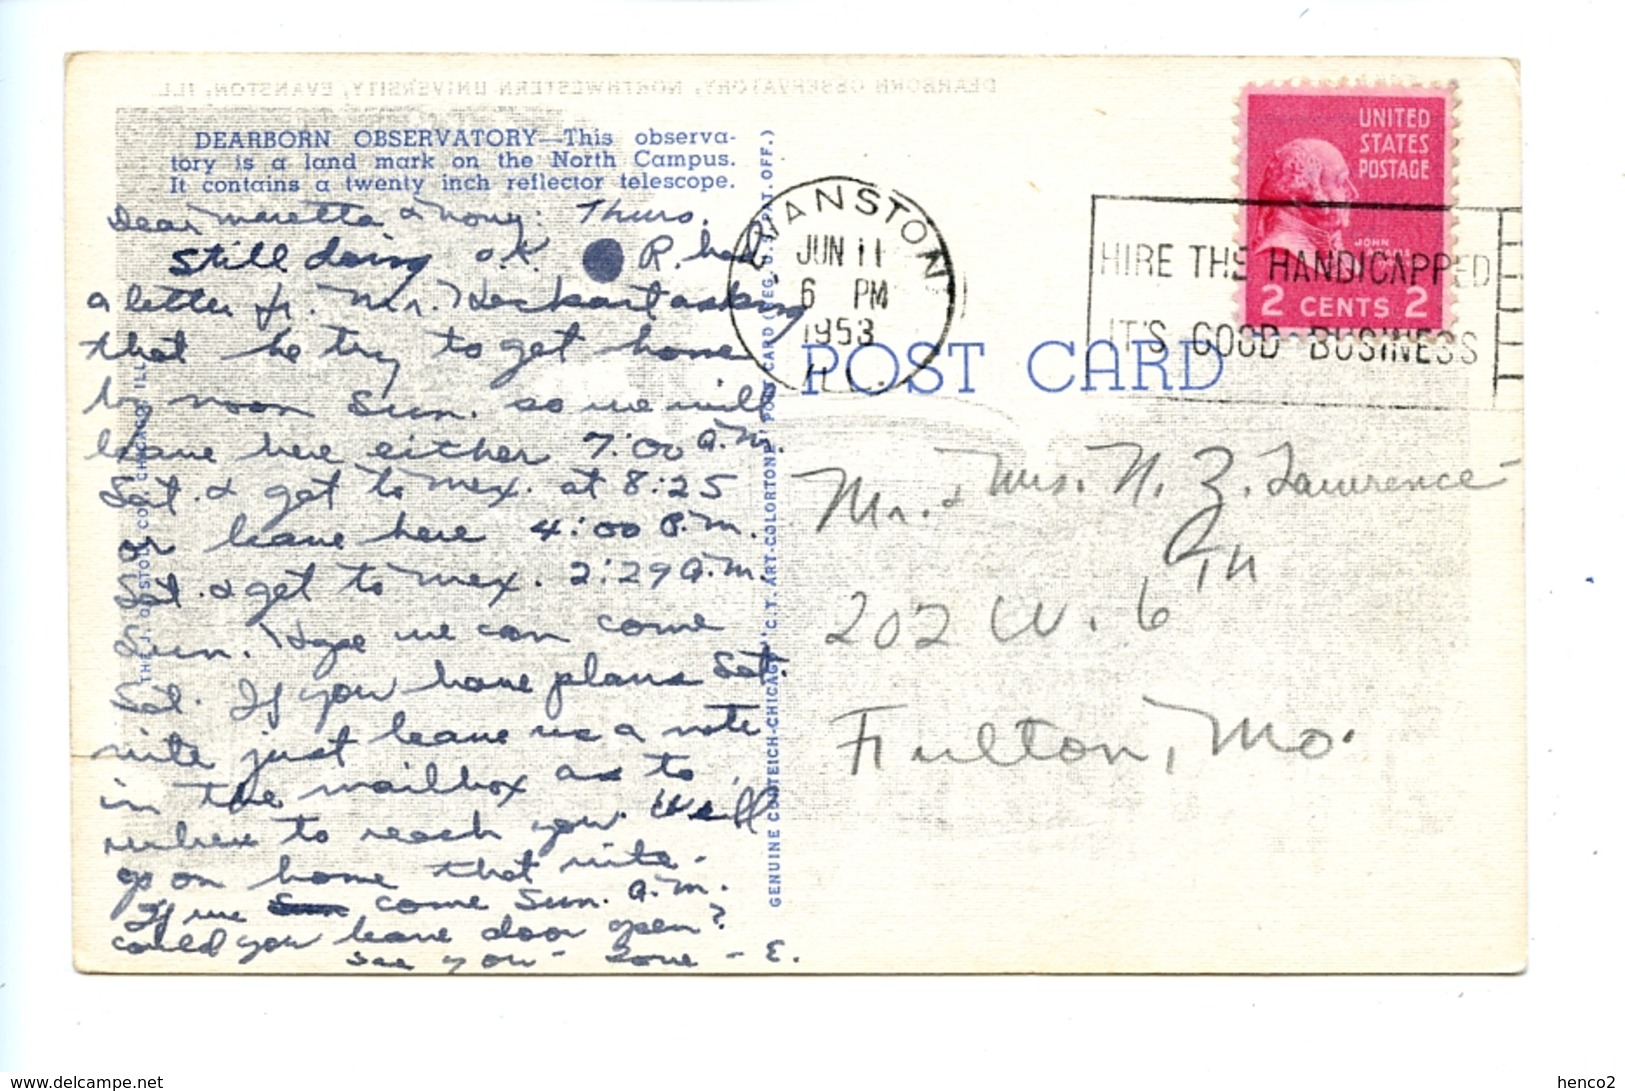 DEARBORN OBSERVATORY, NORTHWESTERN UNIVERSITY, EVANSTON, ILL.
DEARBORN OBSERVATORY—This observa-
tory is a land mark on the North Campus.
It contains a twenty inch reflector telescope.
Dear Maretta & Thurs.
Still doing o.K. R. had
a letter fr. Mr. Heckart asking
that he try to get home
by noon Sun. so we will
leave here either 7:00 A.M.
Sat. & get to Mex. at 8:25
or leave here 4:00 P.M.
Sat. & get to Mex. 2:29 A.M.
Sun. Hope we can come
Sat. If you have plans Sat.
nite just leave us a note
in the mailbox as to
where to reach you. Will
go on home that nite.
If we Sun come Sun. A.M.
could you leave door open?
See you - Love - E.
THE J. O. STOLL CO., CHICAGO, ILL.
GENUINE CURTEICH-CHICAGO "C.T. ART-COLORTONE" POST CARD (REG. U.S. PAT. OFF.)
EVANSTON
JUN 11
6 PM
1953
ILL.
HIRE THE HANDICAPPED
IT'S GOOD BUSINESS
UNITED
STATES
POSTAGE
JOHN
2 CENTS 2
POST CARD
Mr. & Mrs. N. Z. Lawrence
202 W. 6
Fulton, Mo.
https://www.delcampe.net
henco2